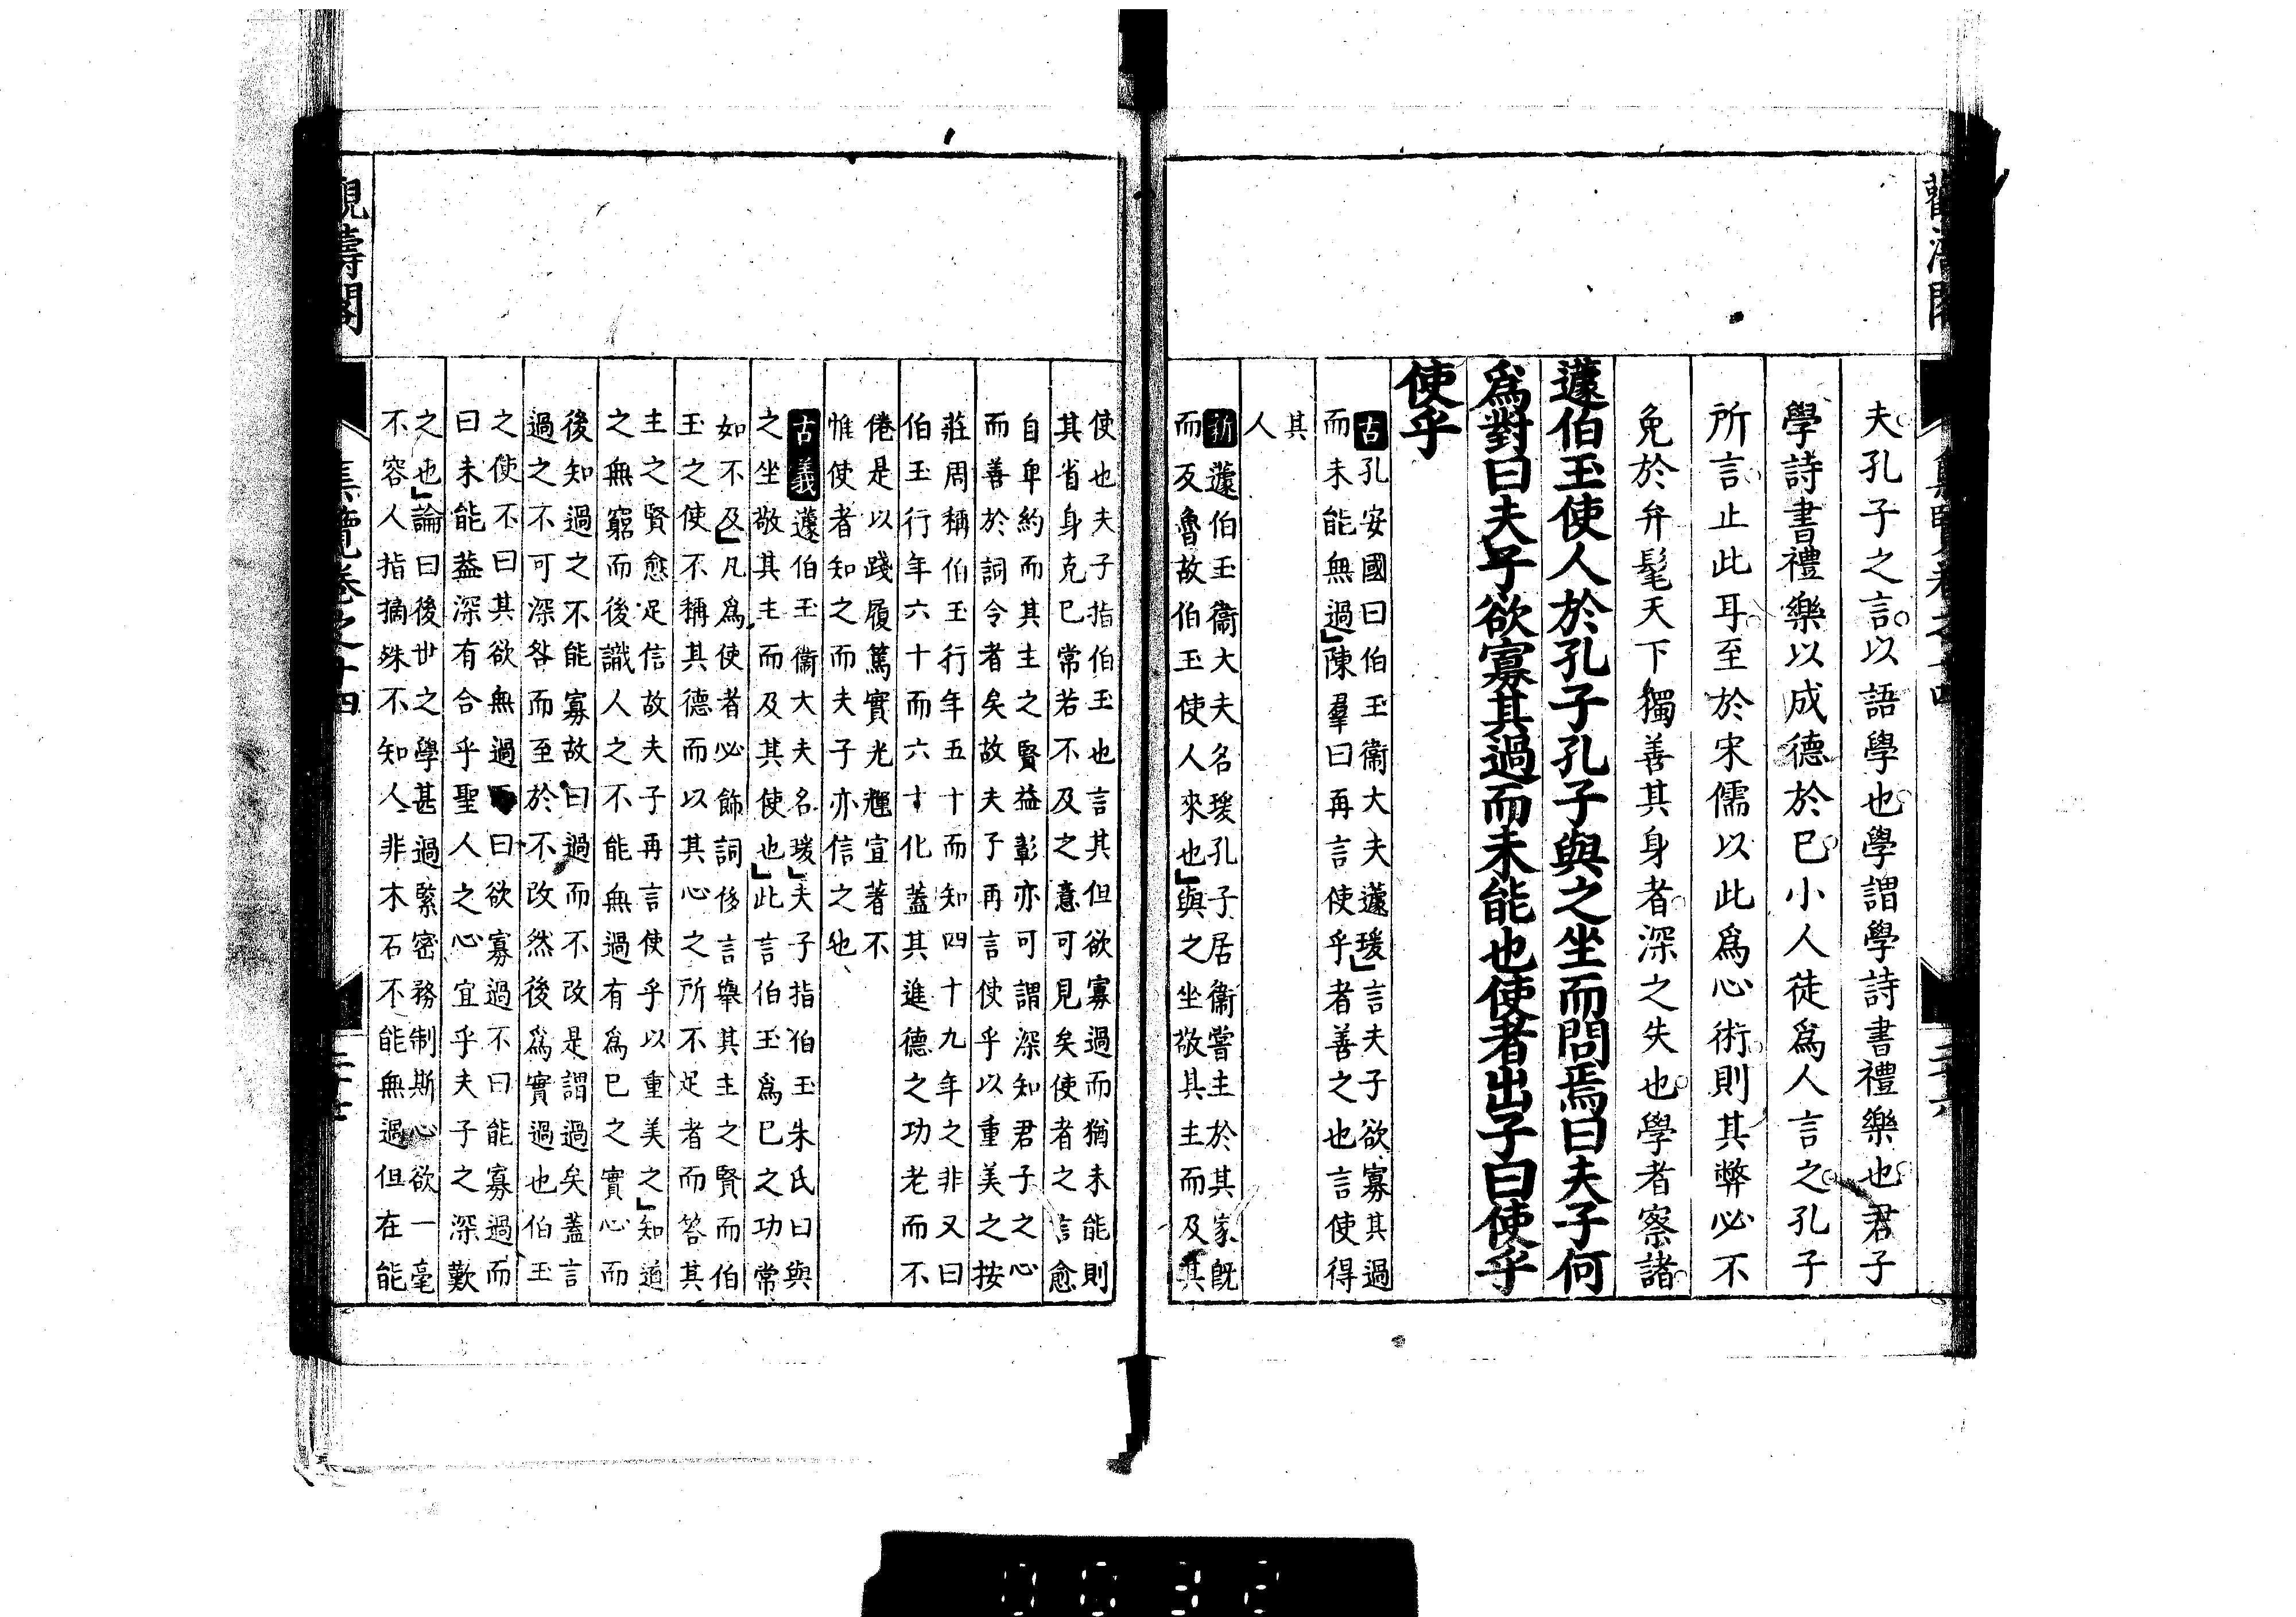 夫孔子之言以語學也學謂學詩書禮樂也君子
學詩書禮樂以成德於已小人徒爲人言之孔子
所言止此耳至於宋儒以此爲心術則其弊必不
免於弁髦天下獨善其身者深之失也學者察諸
蘧伯玉使人於孔子孔子與之坐而問焉曰夫子何
爲對曰夫子欲寡其過而未能也使者出子曰使乎
使乎
古孔安國曰伯玉衞大夫蘧瑗言夫子欲寡其過
而未能無過陳羣曰再言使乎者善之也言使得
其
人
新蘧伯玉衞大夫名瑗孔子居衞嘗主於其家旣
而反魯故伯玉使人來也與之坐敬其主而及其
使也夫子指伯玉也言其但欲寡過而猶未能則
其省身克已常若不及之意可見矣使者之言愈
自卑約而其主之賢益彰亦可謂深知君子之心
而善於詞令者矣故夫子再言使乎以重美之按
莊周稱伯玉行年五十而知四十九年之非又曰
伯玉行年六十而六十化蓋其進德之功老而不
倦是以踐履篤實光輝宣著不
惟使者知之而夫子亦信之也
古義蘧伯玉衞大夫名瑗夫子指伯玉朱氏曰與
之坐敬其主而及其使也此言伯玉爲已之功常
如不及凡爲使者必飾詞侈言舉其主之賢而伯
玉之使不稱其德而以其心之所不足者而答其
主之賢愈足信故夫子再言使乎以重美之知道
之無窮而後識人之不能無過有爲已之實心而
後知過之不能寡故曰過而不改是謂過矣蓋言
過之不可深咎而至於不改然後爲實過也伯玉
之使不曰其欲無過而曰欲寡過不曰能寡過而
曰未能蓋深有合乎聖人之心宜乎夫子之深歎
之也論曰後世之學甚過緊密務制斯心欲一毫
不容人指摘殊不知人非木石不能無過但在能
觀濤閣
集覽卷之十四